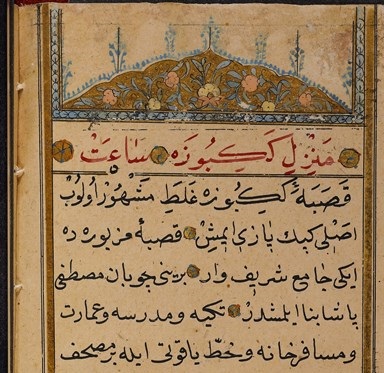 منزل ككبوزه ساعت ٥
قصبهٔ ككبوزه غلط مشهور اولوب
اصلى كيك يازى ايمش قصبهٔ مزبوره ده
ايكى جامع شريف وار برينى چوبان مصطفى
پاشا بنا ايلمشدر تكيه و مدرسه و عمارت
و مسافرخانه و خط ياقوتى ايله بر مصحف